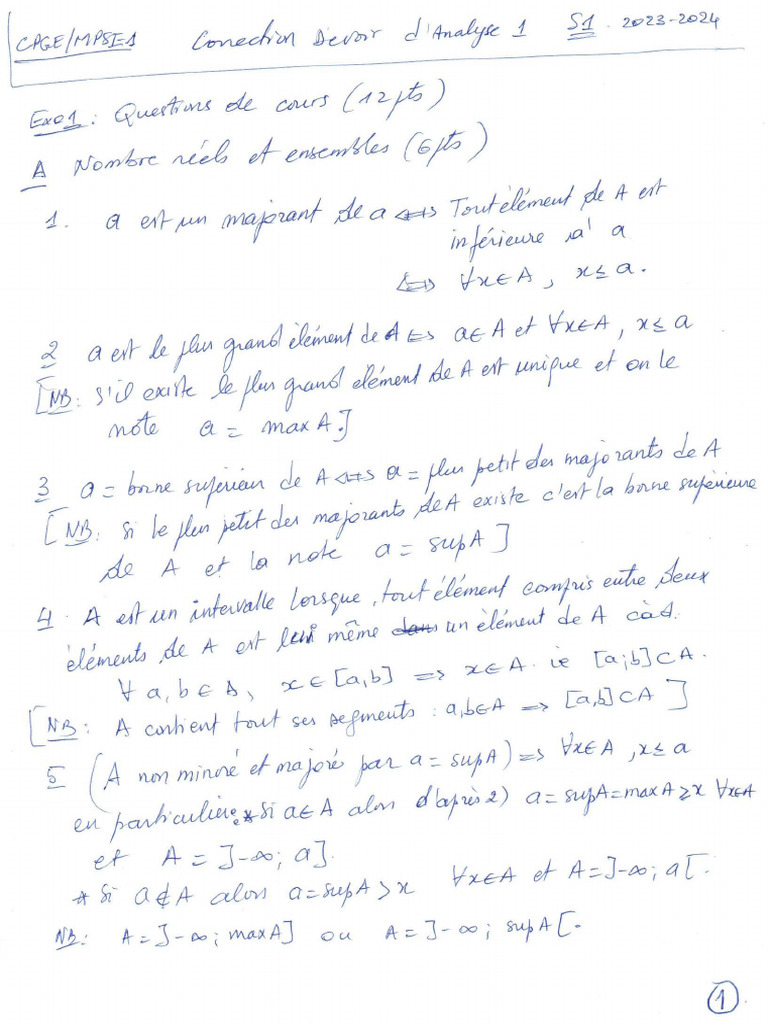 CPGE/MPSI-1 Correction Devoir d'Analyse 1 S1. 2023-2024
Exo1: Questions de cours (12pts)
A Nombre réels et ensembles (6pts)
1. a est un majorant de a ⟺ Tout élément de A est
inférieure à a
⟺ ∀x∈A, x≤a.
2 a est le plus grand élément de A ⟺ a∈A et ∀x∈A, x≤a
[NB: s'il existe le plus grand élément de A est unique et on le
note a = maxA.]
3 a = borne supérieur de A ⟺ a = plus petit des majorants de A
[NB: si le plus petit des majorants de A existe c'est la borne supérieure
de A et la note a = supA]
4. A est un intervalle lorsque, tout élément compris entre deux
éléments de A est lui même dans un élément de A càd.
∀ a,b∈A, x∈[a,b] ⟹ x∈A. ie [a;b]⊂A.
[NB: A contient tout ses segments: a,b∈A ⟹ [a,b]⊂A]
5 (A non minoré et majoré par a = supA) ⟹ ∀x∈A, x≤a
en particulière * si a∈A alors d'après 2) a=supA=maxA≥x ∀x∈A
et A = ]-∞; a].
* Si a∉A alors a=supA>x ∀x∈A et A=]-∞; a[.
NB: A=]-∞; maxA] ou A=]-∞; supA[.
1